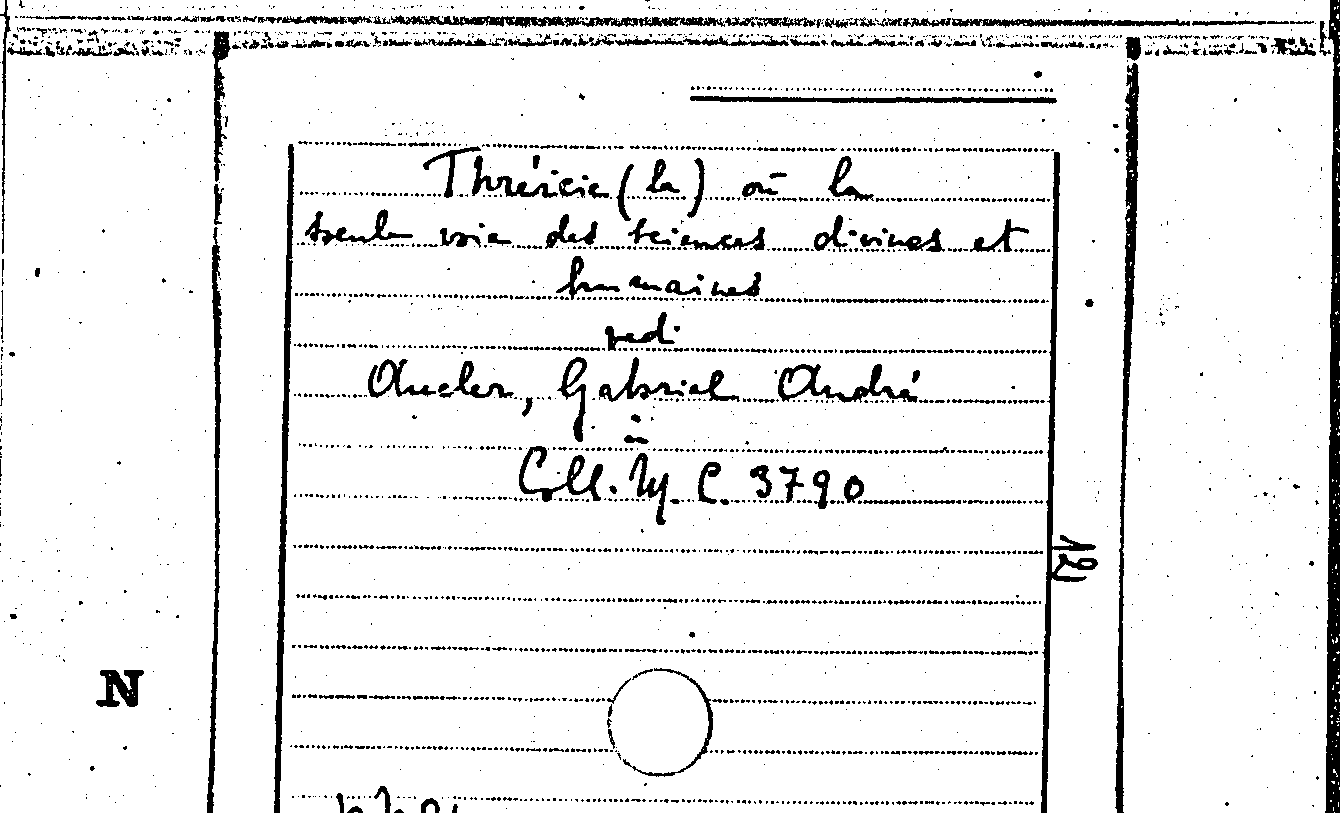 Thréicie (la) ou la
seule voie des sciences divines et
humaines
vedi
Aucler, Gabriel André
in
Coll. M. C. 3790
12
N